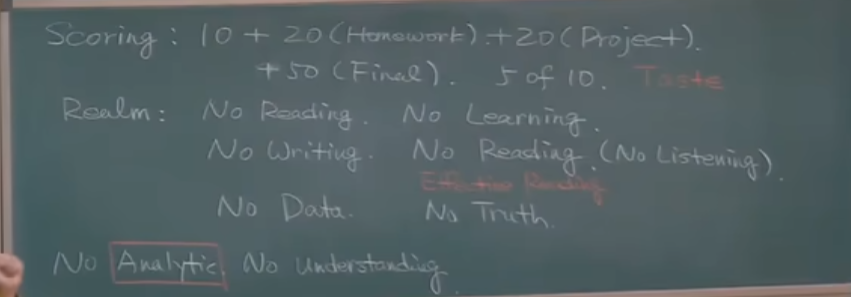 Scoring: 10 + 20 (Homework). + 20 (Project).
+ 50 (Final). 5 of 10. Taste
Realm: No Reading. No Learning.
No Writing. No Reading. (No Listening).
Effective Reading
No Data. No Truth.
No Analytic. No Understanding.